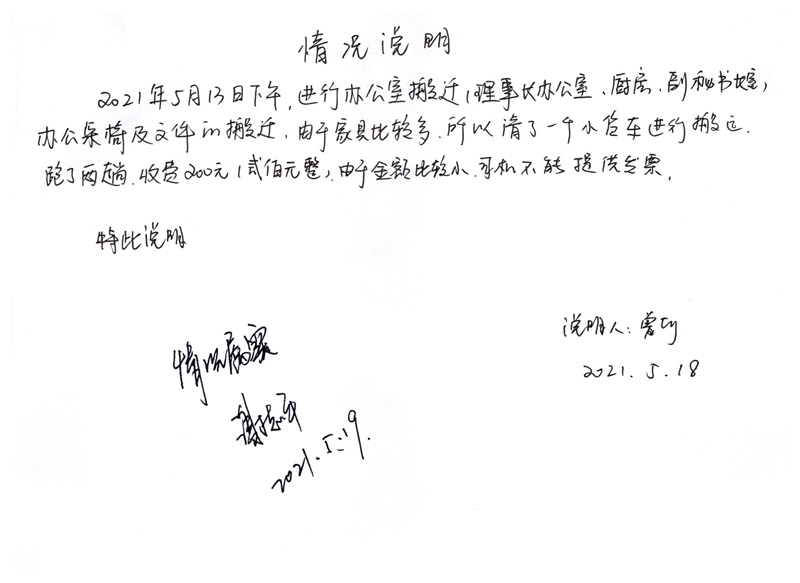 情况说明
2021年5月13日下午,进行办公室搬迁(理事长办公室、厨房、副秘书长室,
办公桌椅及文件的搬迁,由于家具比较多,所以请了一个小货车进行搬运.
跑了两趟.收费200元(贰佰元整),由于金额比较小,司机不能提供发票.
特此说明
说明人:曾
2021.5.18
情况属实
2021.5.19.